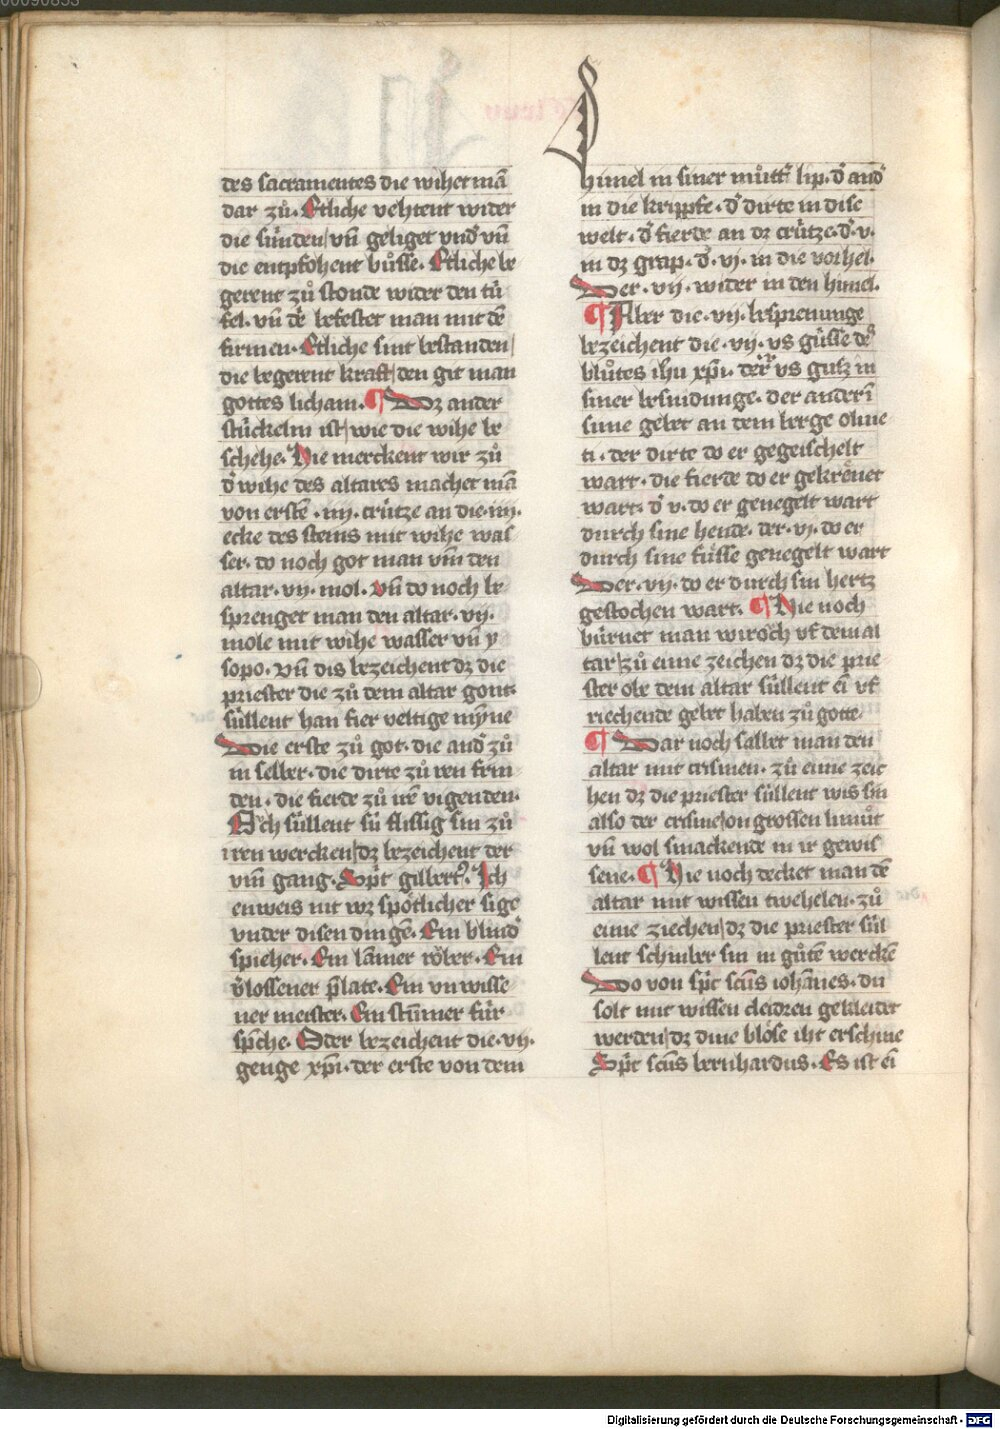 des sacramentes die wihet mā
dar zů. Etliche vehtent wider
die súnden vn̄ geliget vnd' vn̄
die entpfohent bůsse. Etliche be
gerent zů stonde wider den tú
fel. vn̄ dē befestet man mit dē
firmen. Etliche sint bestanden
die begerent kraft den git man
gottes licham. ¶ Dz ander
stúckelin ist wie die wihe be
schehe. Hie merckent wir zů
d' wihe des altares machet mā
von erstē .iiij. crútze an die .iiij.
ecke des steins mit wihe was
ser. do noch got man vm̄ den
altar .vij. mol. vn̄ do noch be
sprenget man den altar .vij.
mole mit wihe wasser vn̄ y
sopo. vn̄ dis bezeichent dz die
priester die zů dem altar gont.
súllent han fier veltige mȳne
Die erste zů got. die and' zů
in selber. die dirte zů ren frin
den. die fierde zů irē vigenden.
Och súllent sú flissig sin zů
iren wercken dz bezeichent der
vm̄ gang. Sp̄t gilbert9. Ich
enweis nit wz spötlicher sige
vnder disen dingē. Ein blind'
spieher. Ein lamer röber. Ein
v'lossener p̄late. Ein vnwisse
ner meister. Ein stūmer fúr
sp̄che. Oder bezeichent die .vij.
genge xp̄i. der erste von dem
himel in siner můtt' lip. d' and'
in die krippfe. d' dirte in dise
welt. d' fierde an dz crútze. d' .v.
in dz grap. d' .vj. in die vorhel.
Der .vij. wider in den himel.
¶ Aber die .vij. besprenunge
bezeichent die .vij. vs gússe de'
blůtes ihū xp̄i. der' vs gusz in
siner besnidunge. der ander ī
sime gebet an dem berge oliue
ti. der dirte do er gegeischelt
wart. die fierde do er gekrönet
wart. d' v. do er genegelt wart
durch sine hende. der .vj. do er
durch sine fússe genegelt wart
Der .vij. do er durch sin hertz
gestochen wart. ¶ Hie noch
búrnet man wiroch vf dem al
tar zů eime zeichen dz die prie
ster obe dem altar súllent eī vf
riechende gebet haben zů gotte.
¶ Dar noch salbet man den
altar mit crismen. zů eime zeic
hen dz die priester súllent wis sin
also der crisme on grossen limůt
vn̄ wol smackende in ir gewis
sene. ¶ Hie noch decket man dē
altar mit wissen twehelen. zů
eime ziechen dz die priester súl
lent schinber sin in gůtē werckē
Do von sp̄t scūs iohānes. du
solt mit wissen cleidren gekleidet
werden dz dine blöse iht erschine
Sp̄t scūs bernhardus. Es ist eī